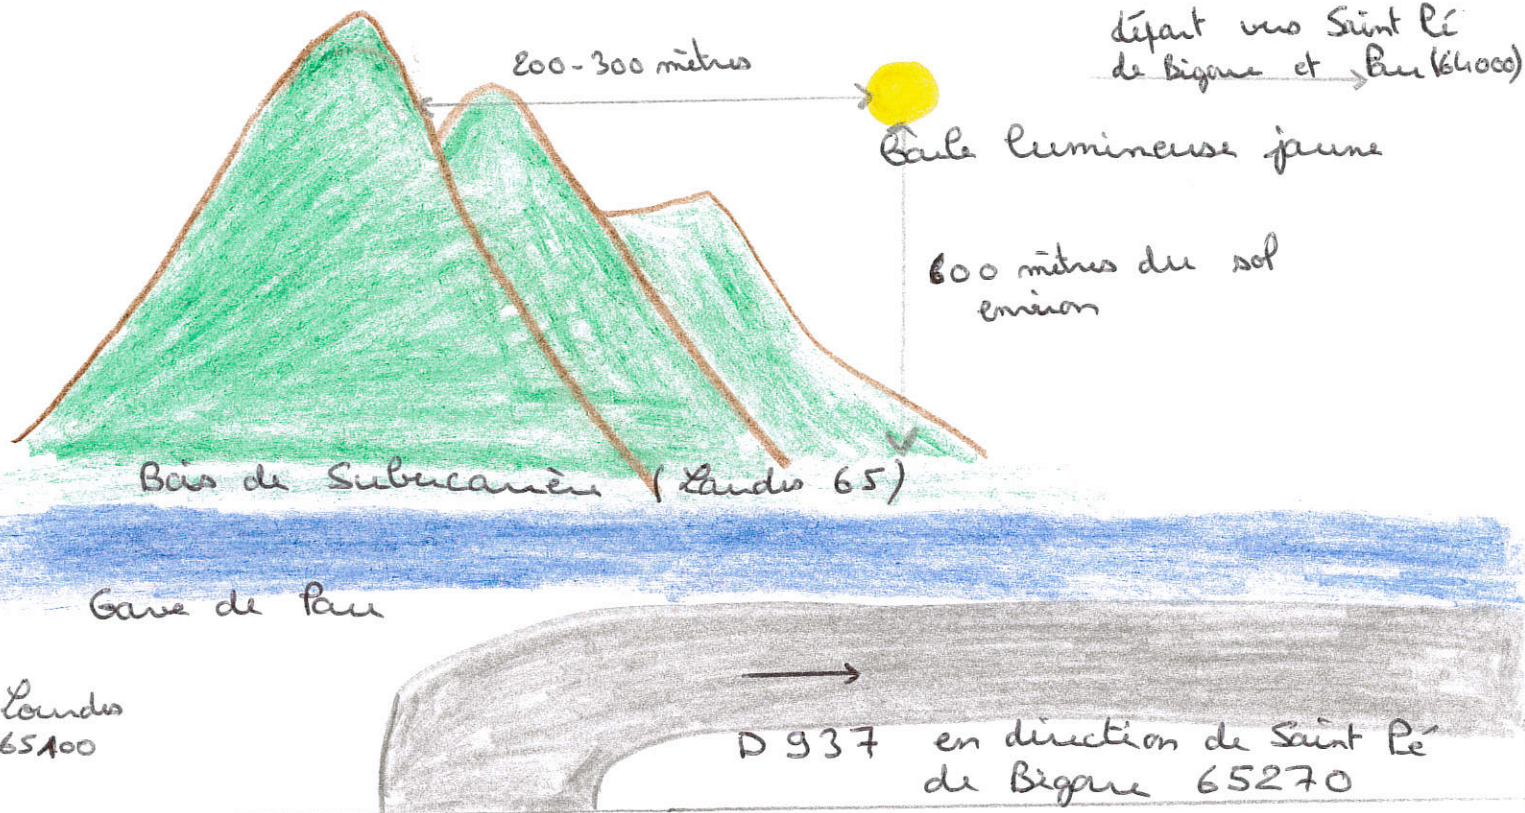 départ vers Saint Pé
de Bigorre et Pau (64000)
200-300 mètres
Boule lumineuse jaune
600 mètres du sol
environ
Bois de Subercarrère (Lourdes 65)
Gave de Pau
Lourdes
65100
D 937 en direction de Saint Pé
de Bigorre 65270